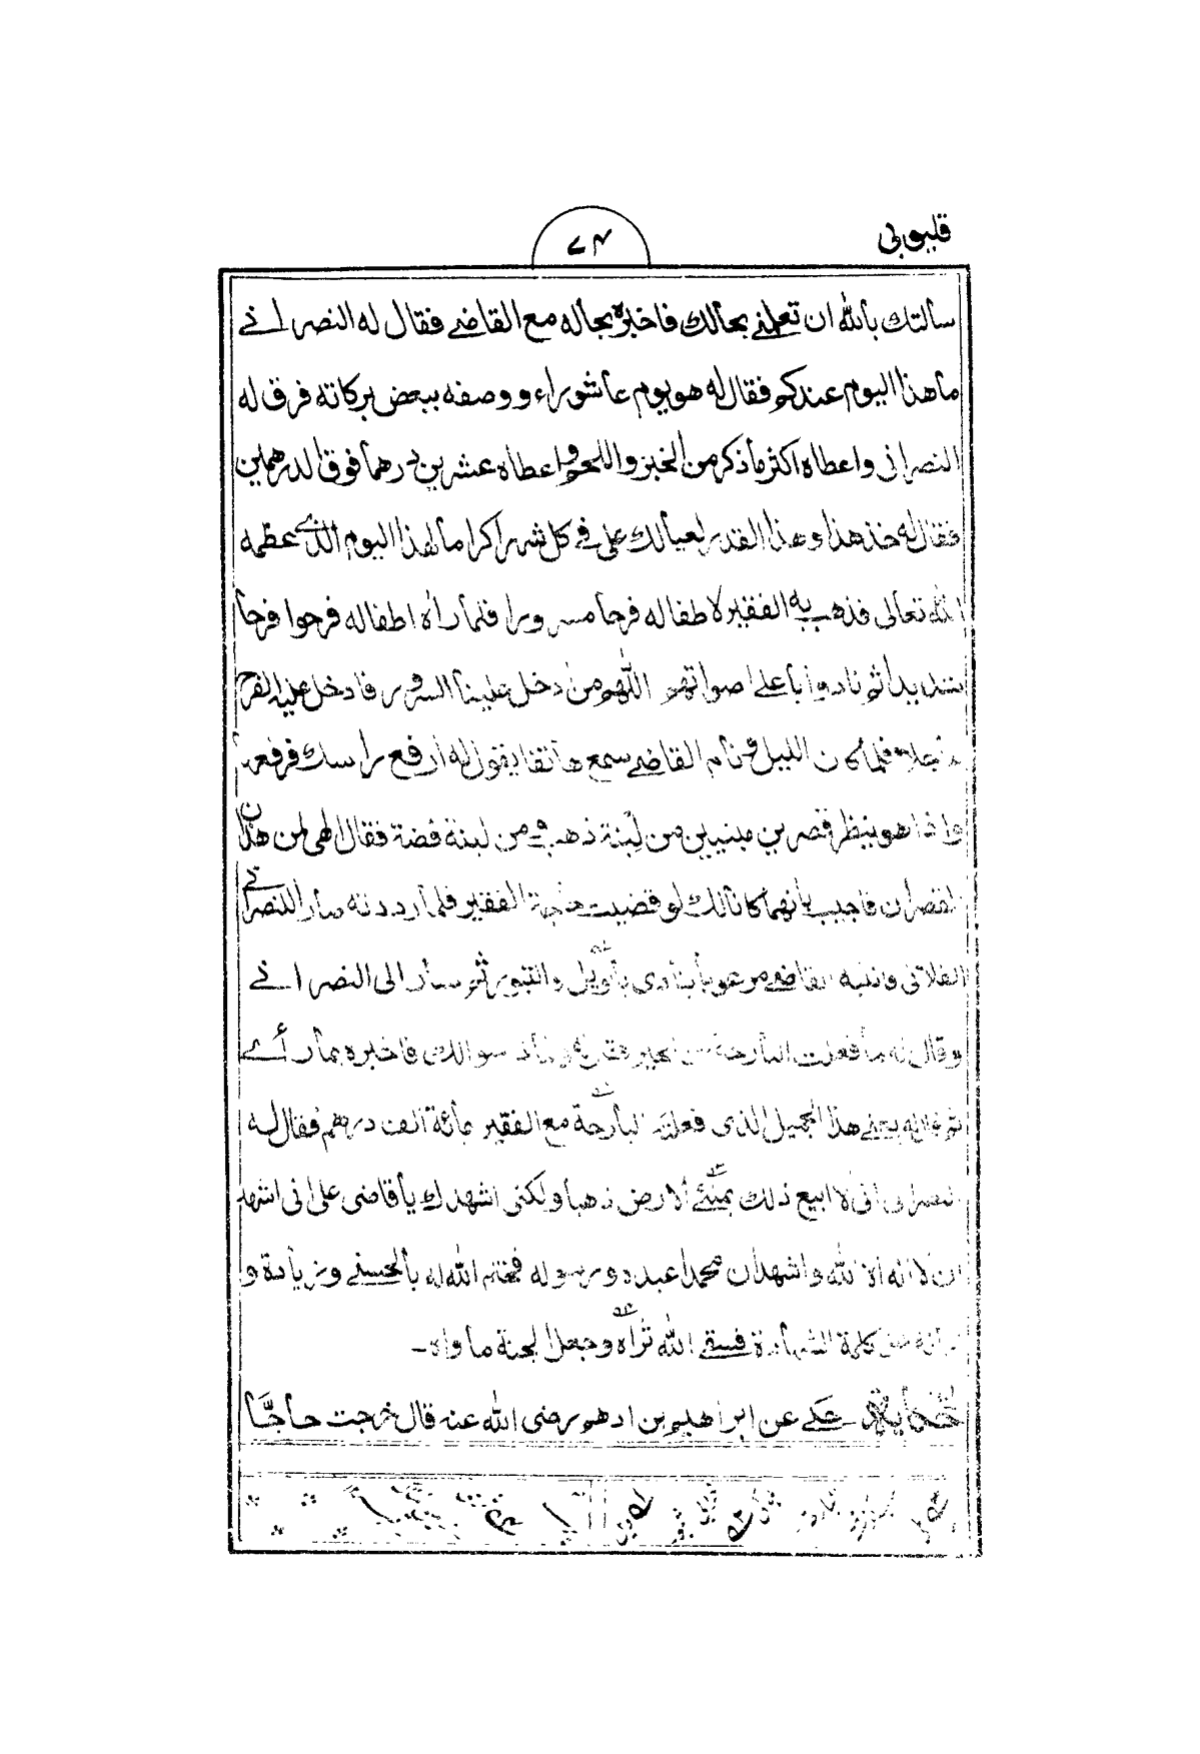 قليوبي
٧٤
سألتك بالله ان تعلمني بحالك فاخبره بحاله مع القاضي فقال له النصراني
ما هذا اليوم عندكم فقال له هو يوم عاشوراء ووصفه ببعض بركاته فرق له
النصراني واعطاه اكثر ماذكر من الخبز واللحم واعطاه عشرين درهما فوق الدرهمين
فقال له خذ هذا وهذا القدر لعيالك على في كل شهر اكراما لهذا اليوم الذي عظمه
الله تعالى فذهب به الفقير لاطفاله فرحا مسرورا فلما راه اطفاله فرحوا فرحا
شديدا ثم نادوا باعلى اصواتهم اللهم من ادخل علينا السرور فادخل عليه الفرح
عاجلا فلما كان الليل ونام القاضي سمع هاتفا يقول له ارفع راسك فرفعه
واذا هو ينظر قصرين مبنيين من لبنة ذهب ومن لبنة فضة فقال الهي لمن هذان
القصران فاجيب بانهما كانا لك لو قضيت حاجة الفقير فلما رددته صارا للنصراني
الفلاني وانتبه القاضي مرعوبا ينادي بالويل والثبور ثم سار الى النصراني
وقال له ما فعلت البارحة من الخير فقال له وماذا سوالك فاخبره بما رأى
ثم قال له بعني هذا الجميل الذى فعلته البارحة مع الفقير بمائة الف درهم فقال له
النصراني اني لا ابيع ذلك بملئ الارض ذهبا ولكني اشهدك يا قاضى على انى اشهد
ان لا اله الا الله واشهد ان محمدا عبده ورسوله فختم الله له بالحسنى وزيادة و
كلمة الشهادة فسقى الله ثراه وجعل الجنة ماواه-
حكاية حكي عن ابراهيم بن ادهم رضى الله عنه قال خرجت حاجًّا